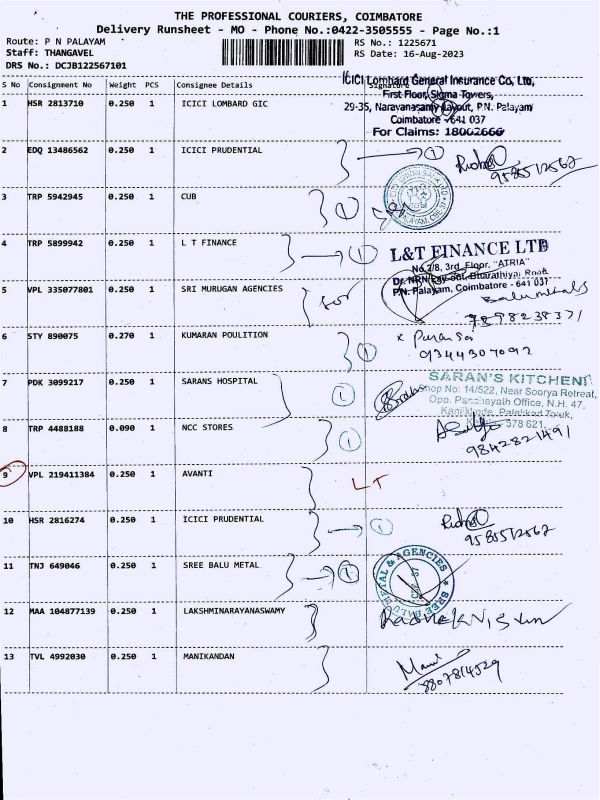 THE PROFESSIONAL COURIERS, COIMBATORE
Delivery Runsheet - MO - Phone No.:0422-3505555 - Page No.:1
Route: P N PALAYAM RS No.: 1225671
Staff: THANGAVEL RS Date: 16-Aug-2023
DRS No.: DCJB122567101
S No Consignment No Weight PCS Consignee Details Signature
ICICI Lombard General Insurance Co. Ltd,
First Floor, Sigma Towers,
1 HSR 2813710 0.250 1 ICICI LOMBARD GIC 29-35, Naravanasamy Layout, P.N. Palayam
Coimbatore - 641 037
For Claims: 18002666
2 EDQ 13486562 0.250 1 ICICI PRUDENTIAL 1
9585512562
3 TRP 5942945 0.250 1 CUB 1
4 TRP 5899942 0.250 1 L T FINANCE 1 L&T FINANCE LTD
No.2/8, 3rd Floor, "ATRIA"
Dr. NRN Layout, Bharathiyar Road
P.N. Palayam, Coimbatore - 641 037
5 VPL 335077801 0.250 1 SRI MURUGAN AGENCIES
7898238371
6 STY 890075 0.270 1 KUMARAN POULITION 1
9344307092
7 PDK 3099217 0.250 1 SARANS HOSPITAL 1
SARAN'S KITCHEN
Shop No: 14/522, Near Soorya Retreat,
Opp. Panchayath Office, N.H. 47,
Taluk,
678 621
8 TRP 4488188 0.090 1 NCC STORES 1
9842821491
9 VPL 219411384 0.250 1 AVANTI LT
10 HSR 2816274 0.250 1 ICICI PRUDENTIAL 1
9585512562
11 TNJ 649046 0.250 1 SREE BALU METAL 1
SREE BALU METAL & AGENCIES
12 MAA 104877139 0.250 1 LAKSHMINARAYANASWAMY
13 TVL 4992030 0.250 1 MANIKANDAN Mani
8807814529